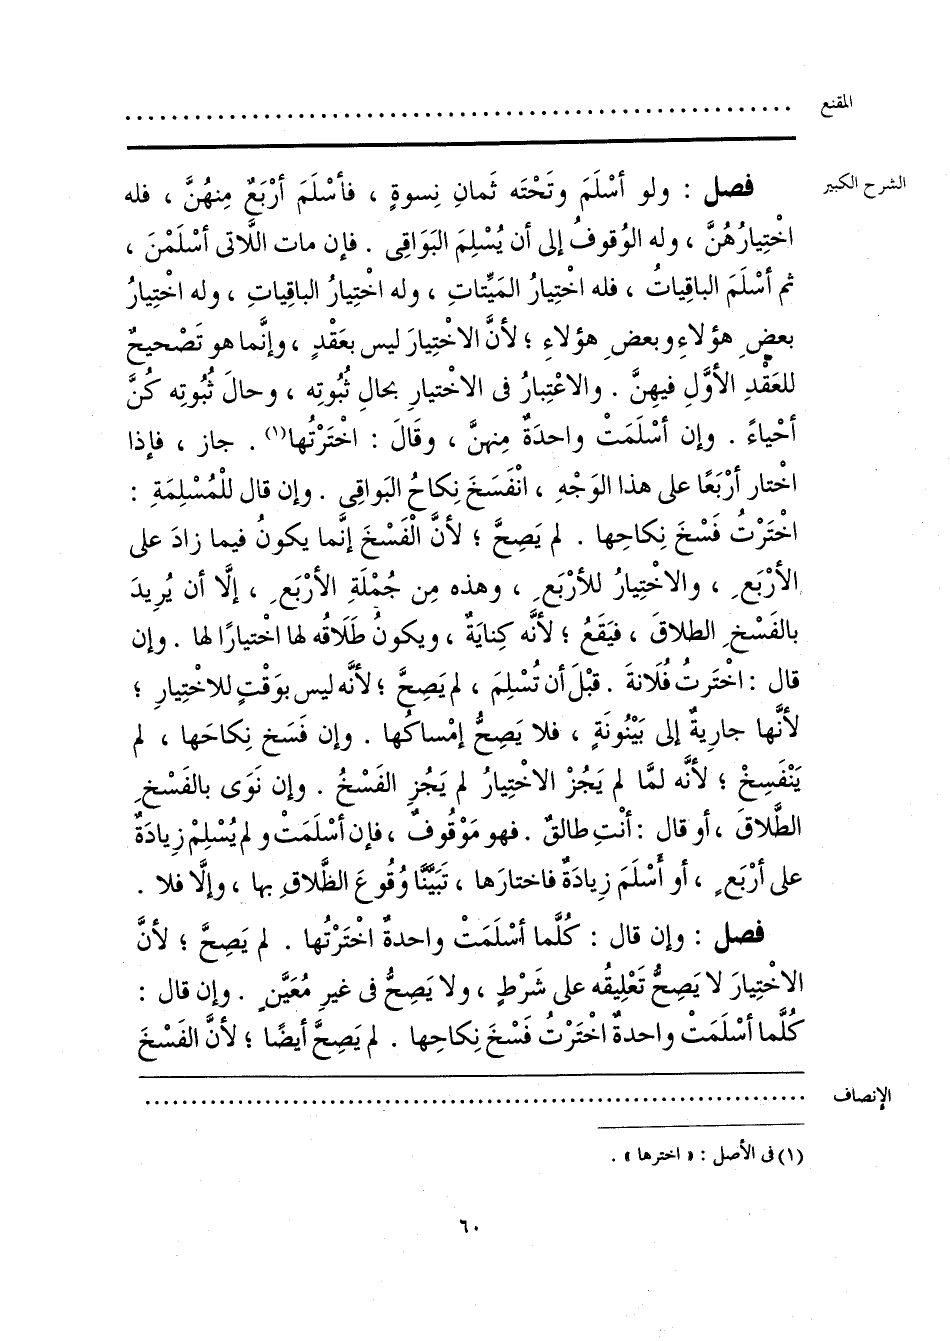 المقنع
الشرح الكبير
فصل : ولو أسْلَمَ وتَحْتَه ثَمانِ نِسوةٍ ، فأسْلَمَ أرْبَعٌ مِنهُنَّ ، فله
اخْتِيارُهُنَّ ، وله الوُقوفُ إلى أن يُسْلِمَ البَوَاقِى . فإن مات اللَّاتى أسْلَمْنَ ،
ثم أسْلَمَ الباقِياتُ ، فله اخْتِيارُ المَيِّتاتِ ، وله اخْتِيارُ الباقِياتِ ، وله اخْتِيارُ
بعضِ هؤلاءِ وبعضِ هؤلاءِ ؛ لأنَّ الاخْتِيارَ ليس بعَقْدٍ ، وإنَّما هو تَصْحيحٌ
للعَقْدِ الأوَّلِ فيهِنَّ . والاعْتِبارُ فى الاخْتيارِ بحالِ ثُبُوتِه ، وحالَ ثُبُوتِه كُنَّ
أحْياءً . وإن أسْلَمَتْ واحدةٌ مِنهنَّ ، وقَالَ : اخْتَرْتُها(١) . جاز ، فإذا
اختار أرْبَعًا على هذا الوَجْهِ ، انْفَسَخَ نِكاحُ البَواقِى . وإن قال للْمُسْلِمَةِ :
اخْتَرْتُ فَسْخَ نِكاحِها . لم يَصِحَّ ؛ لأنَّ الْفَسْخَ إنَّما يكونُ فيما زادَ على
الأرْبَعِ ، والاخْتِيارُ للأرْبَعِ ، وهذه مِن جُمْلَةِ الأرْبَعِ ، إلَّا أن يُرِيدَ
بالفَسْخِ الطلاقَ ، فيَقَعُ ؛ لأنَّه كِنايَةٌ ، ويكونُ طَلَاقُه لها اخْتيارًا لها . وإن
قال : اخْتَرتُ فُلَانةَ . قبْلَ أن تُسْلِمَ ، لم يَصِحَّ ؛ لأنَّه ليس بوَقْتٍ للاخْتِيارِ ؛
لأنَّها جارِيةٌ إلى بَيْنُونَةٍ ، فلا يَصِحُّ إمْساكُها . وإن فَسَخ نِكاحَها ، لم
يَنْفَسِخْ ؛ لأنَّه لمَّا لم يَجُزْ الاخْتِيارُ لم يَجُزِ الفَسْخُ . وإن نَوَى بالفَسْخِ
الطَّلاقَ ، أو قال : أنْتِ طالقٌ . فهو مَوْقُوفٌ ، فإن أسْلَمَتْ ولم يُسْلِمْ زِيادَةٌ
على أرْبَعٍ ، أو أسْلَمَ زِيادَةٌ فاختارَها ، تَبَيَّنَّا وُقُوعَ الطَّلاقِ بها ، وإلَّا فلا .
فصل : وإن قال : كُلَّما أسْلَمَتْ واحدةٌ اخْتَرْتُها . لم يَصِحَّ ؛ لأنَّ
الاخْتِيارَ لا يَصِحُّ تَعْلِيقُه على شَرْطٍ ، ولا يَصِحُّ فى غيرِ مُعَيَّنٍ . وإن قال :
كُلَّما أسْلَمَتْ واحدةٌ اخْتَرْتُ فَسْخَ نِكاحِها . لم يَصِحَّ أيضًا ؛ لأنَّ الفَسْخَ
الإنصاف
(١) فى الأصل : « اخترها » .
٦٠